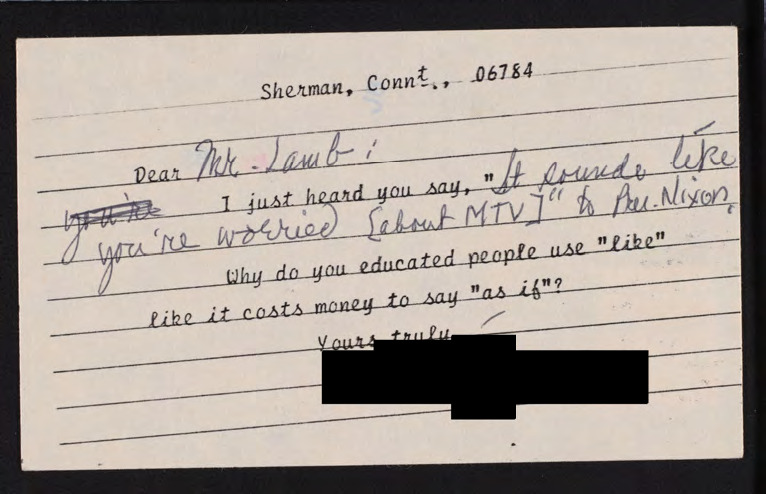 Sherman, Connt., 06784
Dear Mr. Lamb:
I just heard you say, "It sounds like
you're worried [about MTV]" to Pres. Nixon.
Why do you educated people use "like"
like it costs money to say "as if"?
Yours truly